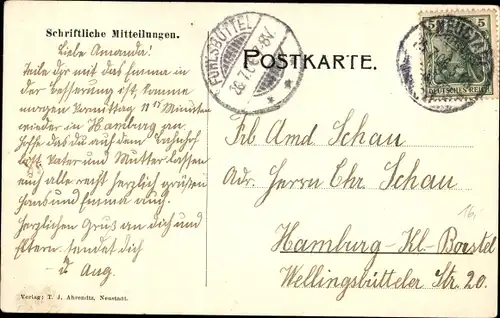 Schriftliche Mitteilungen.
Liebe Amanda!
Teile dir mit das Emma in
der besserung ist, komme
morgen Vormittag 11 15 Minuten
wieder in Hamburg an
hoffe das du auf dem Bahnhof
bist. Vater und Mutter lassen
euch alle recht herzlich grüßen
Hans und Emma auch.
Herzlichen Gruß an dich und
Eltern sendet dich
Aug.
Verlag: T. J. Ahrendtz, Neustadt.
FUHLSBÜTTEL
POSTKARTE.
NEUSTADT
5
DEUTSCHES REICH
Frl Amd Schau
Adr. Herrn Chr. Schau
16.
Hamburg-Kl-Borstel
Wellingsbütteler Str. 20.